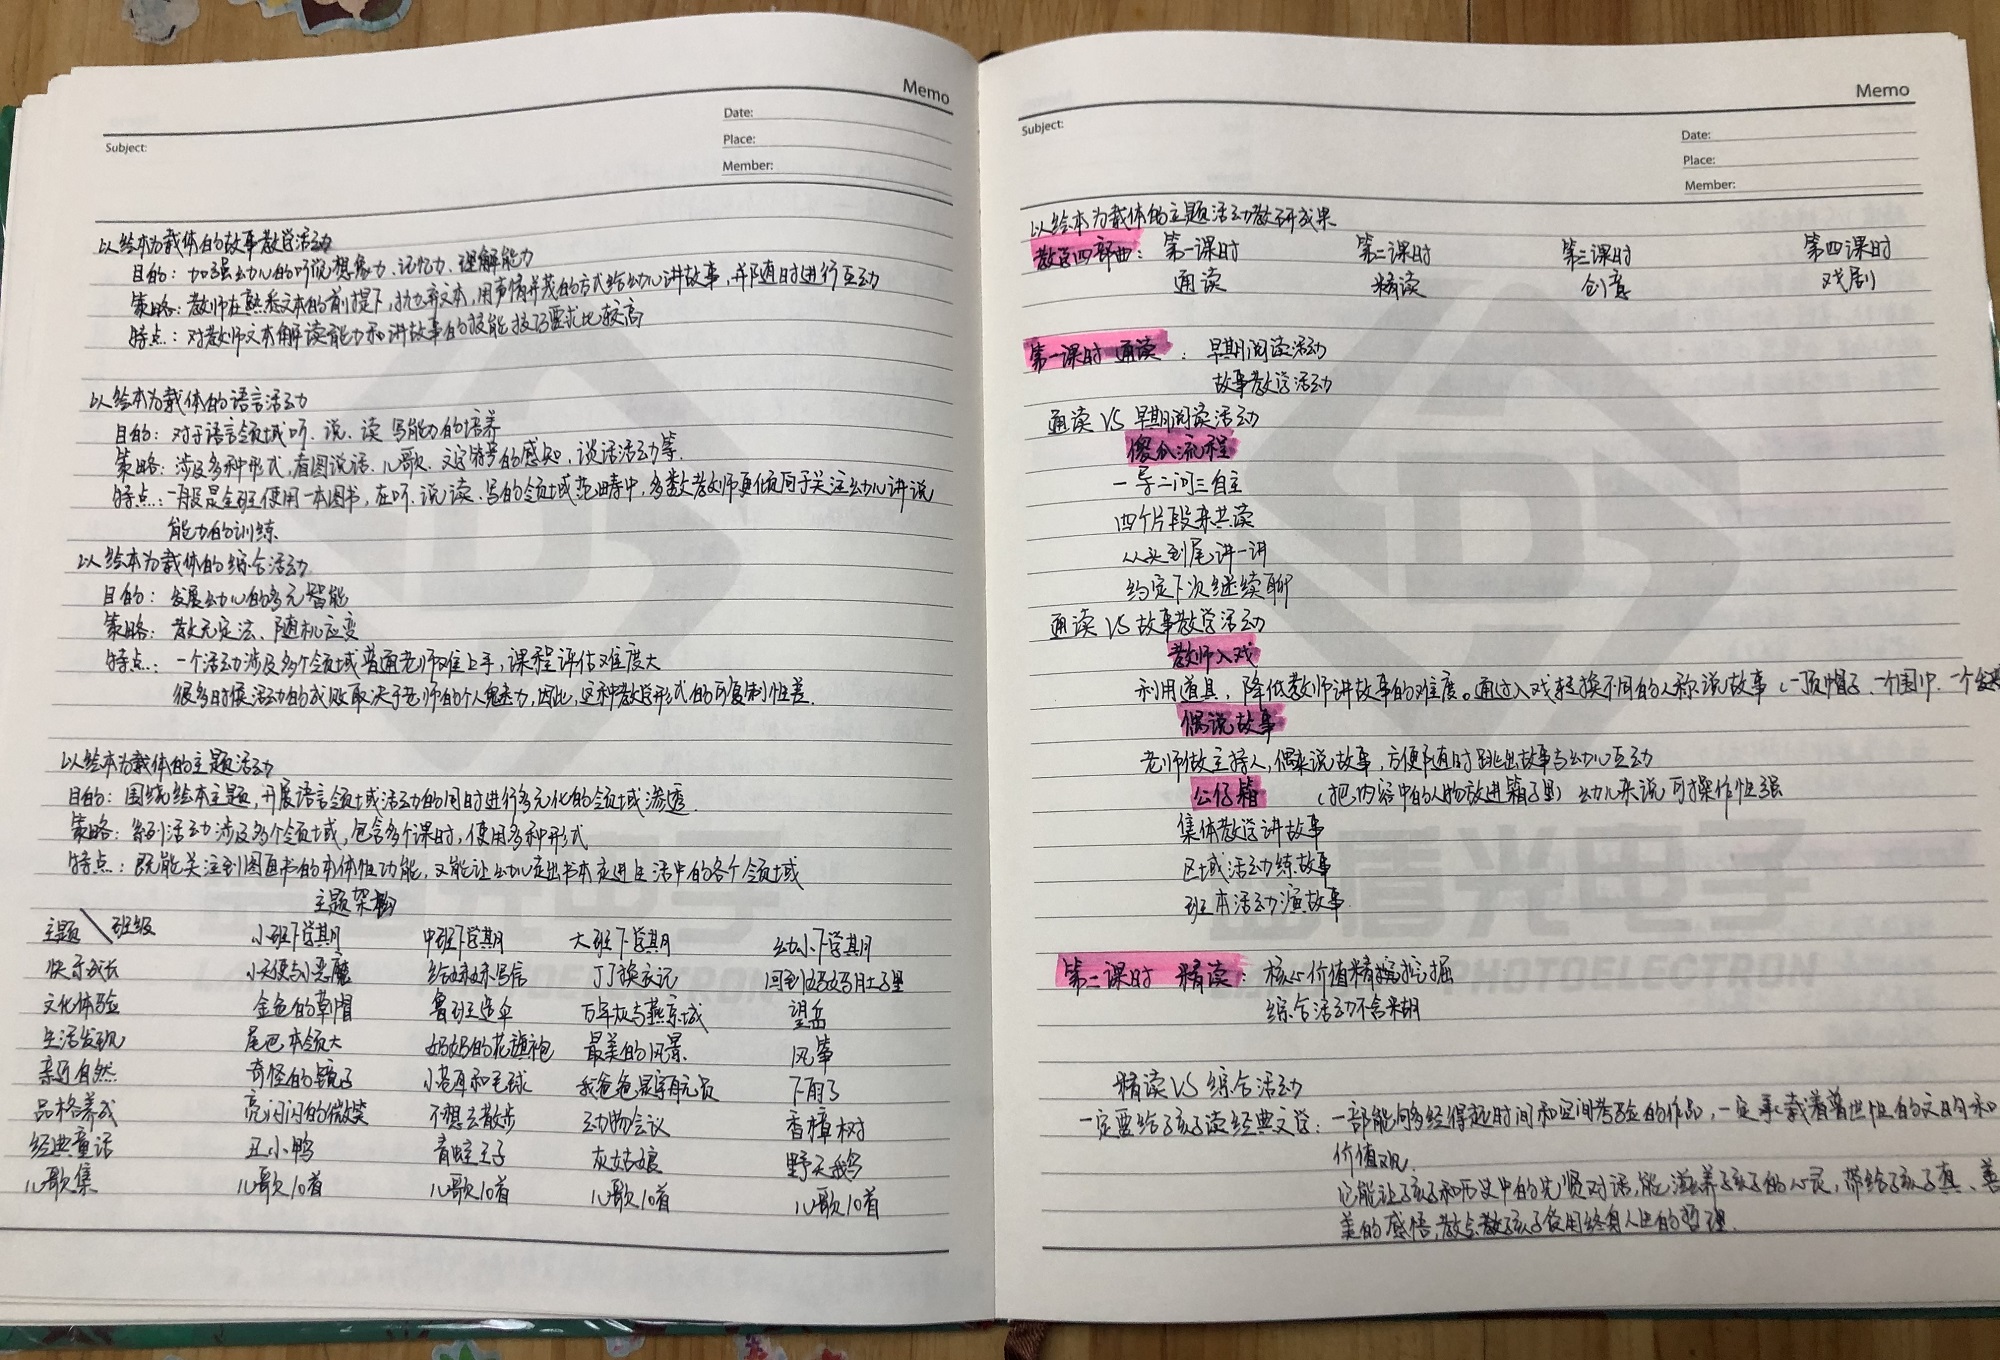 Memo
Subject:
Date:
Place:
Member:
以绘本为载体的故事教学活动
目的：加强幼儿的听说想象力、记忆力、理解能力
策略：教师在熟悉文本的前提下，抛弃文本，用声情并茂的方式给幼儿讲故事，并随时进行互动
特点：对教师文本解读能力和讲故事的技能技巧要求比较高
以绘本为载体的语言活动
目的：对于语言领域听、说、读 写能力的培养
策略：涉及多种形式，看图说话、儿歌、文字符号的感知、谈话活动等.
特点：一般是全班使用一本图书，在听、说、读、写的领域范畴中，多数教师更倾向于关注幼儿讲说
能力的训练
以绘本为载体的综合活动
目的：发展幼儿的多元智能
策略：教无定法、随机应变
特点：一个活动涉及多个领域 普通老师难上手，课程评估难度大
很多时候活动的成败取决于老师的个人魅力，因此，这种教学形式的可复制性差.
以绘本为载体的主题活动
目的：围绕绘本主题，开展语言领域活动的同时进行多元化的领域渗透.
策略：系列活动涉及多个领域，包含多个课时，使用多种形式
特点：既能关注到图画书的本体性功能，又能让幼儿走出书本走进生活中的各个领域
主题架构
主题 \ 班级 小班下学期 中班下学期 大班下学期 幼小下学期
快乐成长 小天使与小恶魔 给妹妹写信 丁丁换衣记 回到妈妈肚子里
文化体验 金色的草帽 鲁班造伞 万年灯与燕京城 望岳
生活发现 尾巴本领大 妈妈的花旗袍 最美的风景 风筝
亲近自然 奇怪的镜子 小老鼠和毛球 我爸爸是宇航员 下雨了
品格养成 亮闪闪的微笑 不想去散步 动物会议 香樟树
经典童话 丑小鸭 青蛙王子 灰姑娘 野天鹅
儿歌集 儿歌10首 儿歌10首 儿歌10首 儿歌10首
Memo
Subject:
Date:
Place:
Member:
以绘本为载体的主题活动教研成果
教学四部曲：第一课时 第二课时 第三课时 第四课时
通读 精读 创意 戏剧
第一课时 通读：早期阅读活动
故事教学活动
通读 VS 早期阅读活动
傻瓜流程
一导二问三自主
四个片段来共读
从头到尾讲一讲
约定下次继续聊
通读 VS 故事教学活动
教师入戏
利用道具，降低教师讲故事的难度。通过入戏转换不同的人称说故事（一顶帽子、一个围巾、一个
偶说故事
老师做主持人，偶来说故事，方便随时跳出故事与幼儿互动
公仔箱 （把内容中的人物放进箱子里）幼儿来说 可操作性强
集体教学讲故事
区域活动练故事
班本活动演故事
第二课时 精读：核心价值精挖挖掘
综合活动不含糊
精读 VS 综合活动
一定要给孩子读经典文学：一部能够多经得起时间和空间考验的作品，一定承载着普世性的文明和
价值观.
它能让孩子和历史中的先贤对话，能滋养孩子的心灵，带给孩子真、善
美的感悟，教会孩子受用终身人生的哲理.